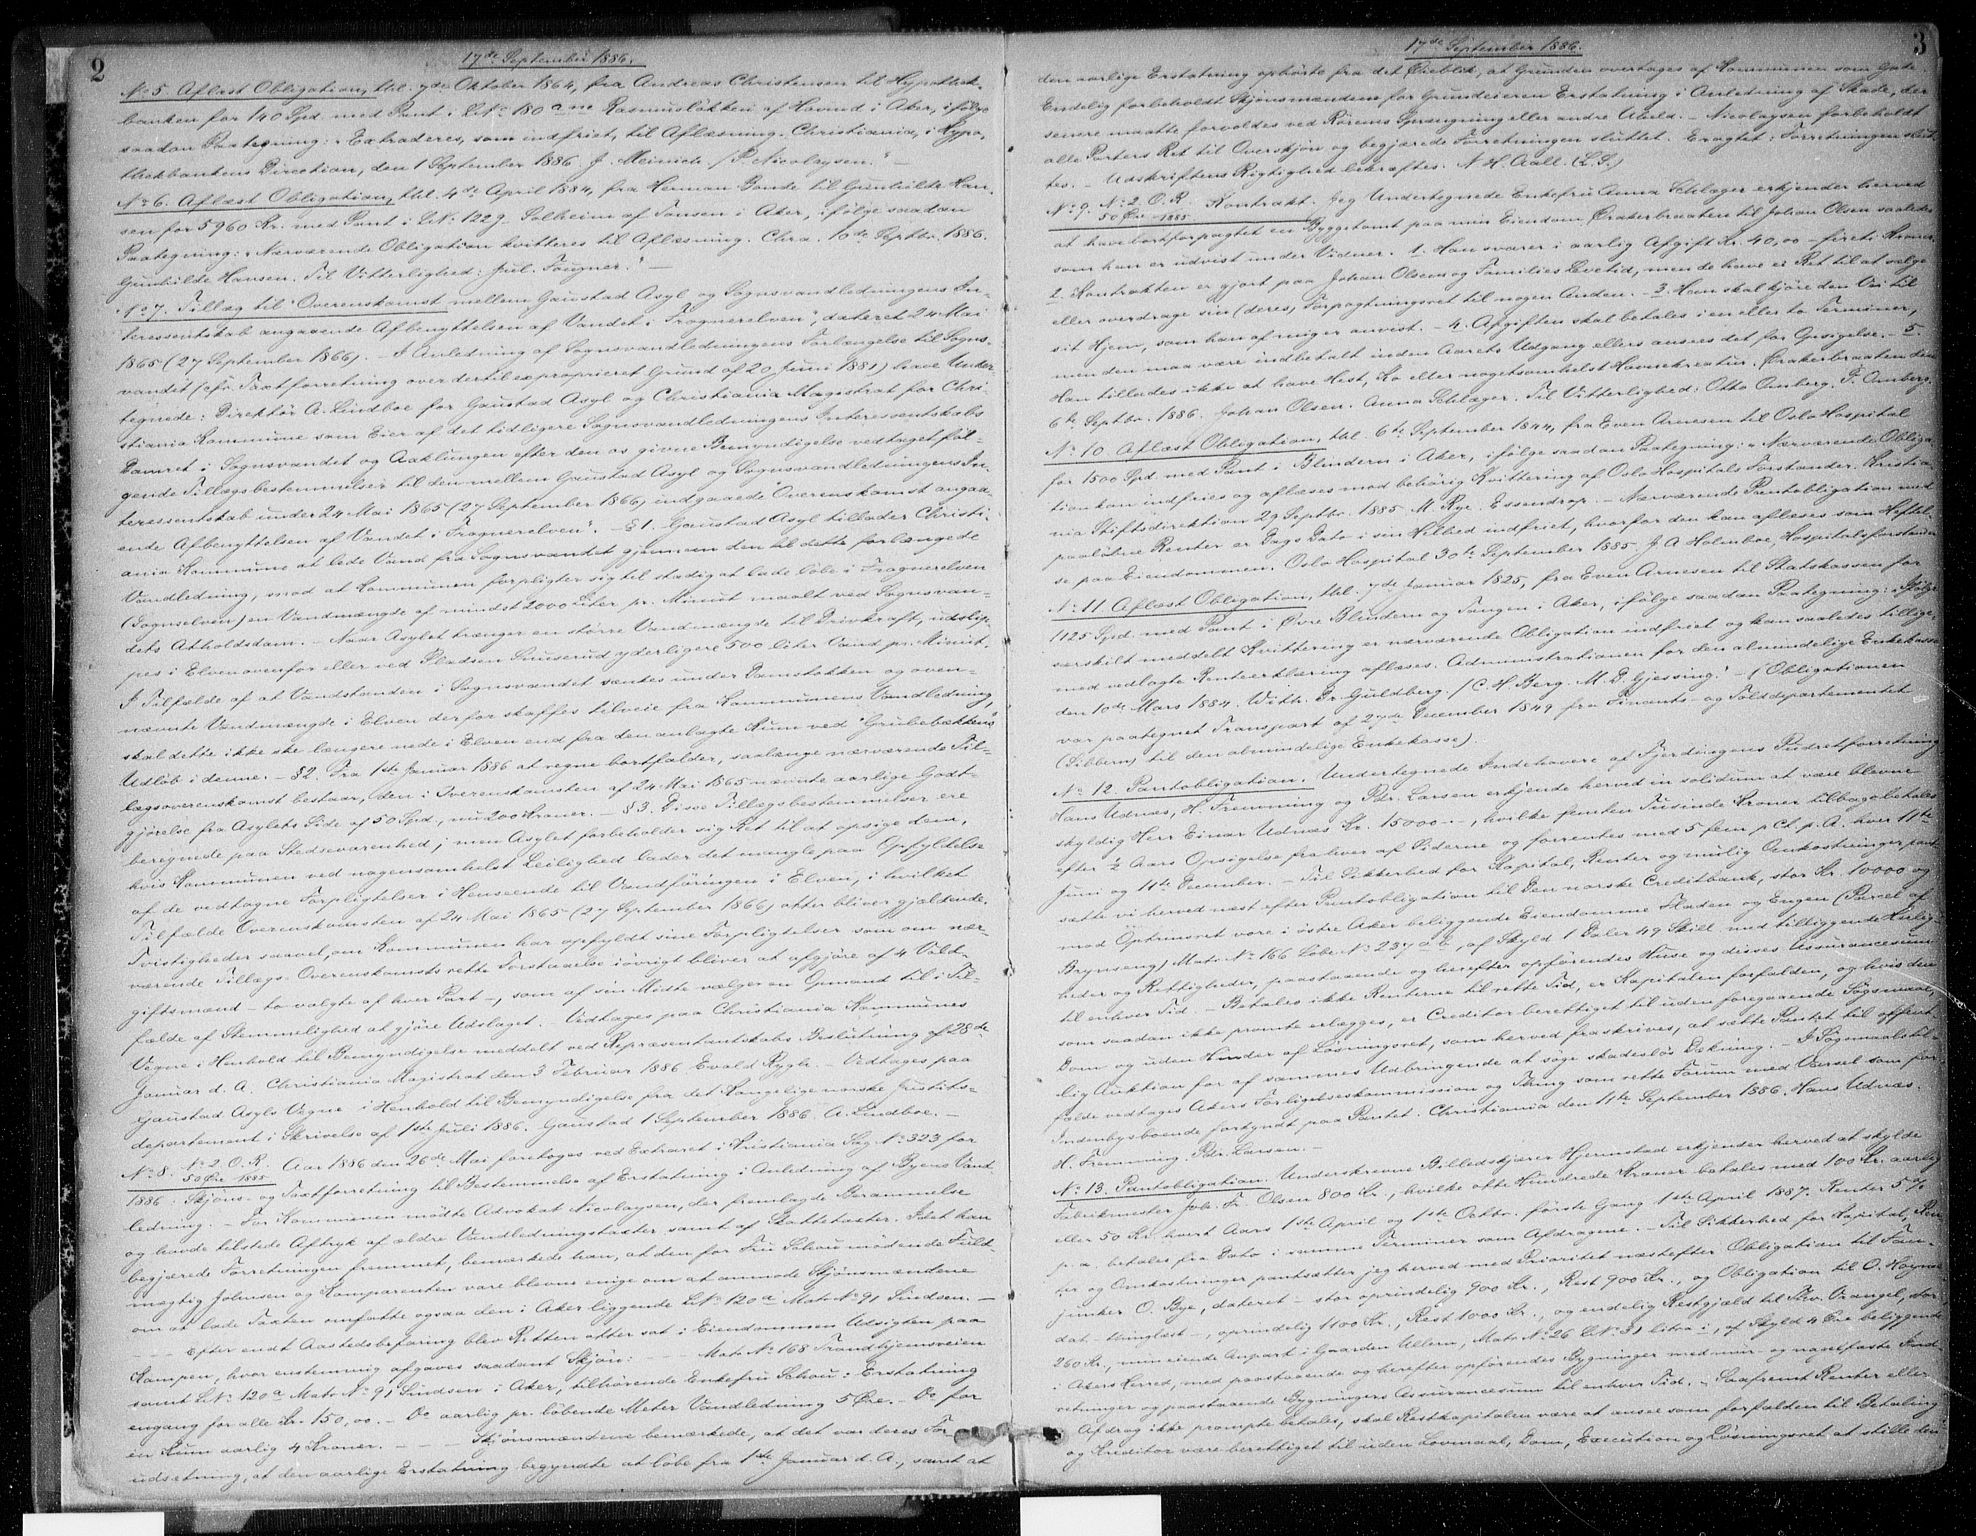 2
17de September 1886.
No 5. Aflæst Obligation, thl. 7de Oktober 1864, fra Andreas Christensen til Hypothek-
banken for 140 Spd. med Pant i LNo 180 Rasmusløkken af Hovind i Aker, ifølge
saadan Paategning: "Extraderes, som indfriet, til Aflæsning. Christiania, i Hypo-
thekbankens Direction, den 1 September 1886. J. Meinich. / P. Nicolaysen." —
No 6. Aflæst Obligation, thl. 4de April 1884, fra Herman Bonde til Gunhilde Han-
sen for 5960 Kr. med Pant i LNo 1229. Solheim af Tonsen i Aker, ifølge saadan
Paategning: "Nærværende Obligation kvitteres til Aflæsning. Chra. 16de Septbr. 1886.
Gunhilde Hansen. Til Vitterlighed: Jul. Fougner." —
No 7. Tillæg til "Overenskomst mellem Gaustad Asyl og Sognsvandledningens In-
teressentskab angaaende Afbenyttelsen af Vandet i Frognerelven", dateret 24 Mai
1865 (27 September 1866). — I Anledning af Sognsvandledningens Forlængelse til Sogns-
vandet (cfr. Taxtforretning over dertil exproprieret Grund af 20 Juni 1881) have Under-
tegnede: Direktør A. Lindboe for Gaustad Asyl og Christiania Magistrat for Chri-
stiania Kommune som Eier af det tidligere Sognsvandledningens Interessentskabs
Damret i Sognsvandet og Aaklungen efter den os givne Bemyndigelse vedtaget føl-
gende Tillægsbestemmelser til den mellem Gaustad Asyl og Sognsvandledningens In-
teressentskab under 24 Mai 1865 (27 September 1866) indgaaede "Overenskomst angaa-
ende Afbenyttelsen af Vandet i Frognerelven". — § 1. Gaustad Asyl tillader Christi-
ania Kommune at lede Vand fra Sognsvandet gjennem den til dette forlængede
Vandledning, mod at Kommunen forpligter sig til stadig at lade løbe i Frognerelven
(Sognselven) en Vandmængde af mindst 2000 Liter pr. Minut maalt ved Sognsvan-
dets Atholdsdam. — Naar Asylet trænger en større Vandmængde til Drivkraft, udslip-
pes i Elven ovenfor eller ved Pladsen Snuserud yderligere 500 liter Vand pr. Minut.
I Tilfælde af at Vandstanden i Sognsvandet sænkes under Damstokken og oven-
nævnte Vandmængde i Elven derfor skaffes tilveie fra Kommunens Vandledning,
skal dette ikke ske længere nede i Elven end fra den anlagte Kum ved "Grubebækkens"
Udløb i denne. — § 2. Fra 1ste Januar 1886 at regne bortfalder, saalænge nærværende Til-
lægsoverenskomst bestaar, den i Overenskomsten af 24 Mai 1865 nævnte aarlige Godt-
gjørelse fra Asylets Side af 50 Spd., nu 200 Kroner. — § 3. Disse Tillægsbestemmelser ere
beregnede paa Stedsevarenhed; men Asylet forbeholder sig Ret til at opsige dem,
hvis Kommunen ved nogensomhelst Leilighed lader det mangle paa Opfyldelse
af de vedtagne Forpligtelser i Henseende til Vandføringen i Elven, i hvilket
Tilfælde Overenskomsten af 24 Mai 1865 (27 September 1866) atter bliver gjældende.
Tvistigheder saavel, om Kommunen har opfyldt sine Forpligtelser som om nær-
værende Tillægs-Overenskomsts rette Forstaaelse iøvrigt bliver at afgjøre af 4 Vold-
giftsmænd — to valgte af hver Part —, som af sin Midte vælger en Opmand til i Til-
fælde af Stemmelighed at gjøre Udslaget. — Vedtages paa Christiania Kommunes
Vegne i Henhold til Bemyndigelse meddelt ved Repræsentantskabs Beslutning af 28de
Januar d. A. Christiania Magistrat den 3 Februar 1886. Evald Rygh. — Vedtages paa
Gaustad Asyls Vegne i Henhold til Bemyndigelse fra det Kongelige norske Justits-
departement i Skrivelse af 1ste Juli 1886. Gaustad 1 September 1886. A. Lindboe. —
No 8. No 2 O. R. 50 Øre 1885. Aar 1886 den 26de Mai foretoges ved Extraret i Kristiania Sag No 323 for
1886: Skjøns- og Taxtforretning til Bestemmelse af Erstatning i Anledning af Byens Vand-
ledning. — For Kommunen mødte Advokat Nicolaysen, der fremlagde Berammelse
og havde tilstede Aftryk af ældre Vandledningstaxter samt af Skattetaxter. Idet han
begjærede Forretningen fremmet, bemærkede han, at den for Fru Schou mødende Fuld-
mægtig Johnsen og Komparenten vare blevne enige om at anmode Skjønsmændene
om at lade Taxten omfatte ogsaa den i Aker liggende LNo 120a Mat. No 91 Sindsen. —
— — Efter endt Aastedsbefaring blev Retten atter sat i Eiendommen Udsigten paa
Kampen, hvor enstemmig afgaves saadant Skjøn: — — Mat. No 168 Trondhjemsveien
samt LNo 120a Mat. No 91 Sindsen i Aker, tilhørende Enkefru Schou: Erstatning
engang for alle Kr. 150,00. — Do aarlig pr. løbende Meter Vandledning 5 Øre. — Do for
en Kum aarlig 4 Kroner. — — — Skjønsmændene bemærkede, at det var deres For-
udsætning, at den aarlige Erstatning begyndte at løbe fra 1ste Januar d. A., samt at
3
17de September 1886.
den aarlige Erstatning ophørte fra det Øieblik, at Grunden overtages af Kommunen som Gade.
Endelig forbeholdt Skjønsmændene for Grundeieren Erstatning i Anledning af Skade, der
senere maatte forvoldes ved Rørens Sprængning eller andre Uheld. — Nicolaysen forbeholdt
alle Parters Ret til Overskjøn og begjærede Forretningen sluttet. Eragtet: Forretningen slut-
tes. — Udskriftens Rigtighed bekræftes. N. H. Aall. (L. S.)
No 9. No 2 O. R. 50 Øre 1885. Kontrakt. Jeg Undertegnede Enkefru Anna Schlæger erkjender herved
at have bortforpagtet en Byggetomt paa min Eiendom Ørakerbraaten til Johan Olsen saaledes
som han er udvist under Vidner. 1. Han svarer i aarlig Afgift Kr. 40,00 — firti Kroner.
2. Kontrakten er gjort paa Johan Olsen og Families Levetid, men de have ei Ret til at sælge
eller overdrage sin (deres) Forpagtningsret til nogen Anden. — 3. Han skal kjøre den Vei til
sit Hjem, som han af mig er anvist. — 4. Afgiften skal betales i en eller to Terminer,
men den maa være indbetalt inden Aarets Udgang ellers ansees det for Opsigelse. — 5.
Han tillades ikke at have Hest, Ko eller nogetsomhelst Haveskreatur. Ørakerbraaten den
6te Septbr. 1886. Johan Olsen. Anna Schlæger. Til Vitterlighed: Otto Omberg. P. Omberg.
No 10. Aflæst Obligation, thl. 6te September 1844, fra Even Arnesen til Oslo Hospital
for 1500 Spd med Pant i Blindern i Aker, ifølge saadan Paategning: "Nærværende Obliga-
tion kan indfries og aflæses mod behørig Kvittering af Oslo Hospitals Forstander. Kristia-
nia Stiftsdirektion 29 Septbr. 1885. M. Rye. Essendrop. — Nærværende Pantobligation med
paaløbne Renter er Dags Dato i sin Helhed indfriet, hvorfor den kan aflæses som Heftel-
se paa Eiendommen. Oslo Hospital 30te September 1885. J A Holmboe, Hospitalsforstander.
No 11. Aflæst Obligation, thl. 7de Januar 1825, fra Even Arnesen til Statskassen for
1125 Spd med Pant i Øvre Blindern og Tangen i Aker, ifølge saadan Paategning: "Ifølge
særskilt meddelt Kvittering er nærværende Obligation indfriet og kan saaledes tillige-
med vedlagte Renteerklæring aflæses. Administrationen for den almindelige Enkekasse
den 10de Mars 1884. With. Dr Guldberg. / C. H. Berg. M. D. Gjessing." — (Obligationen
var paategnet Transport af 27de December 1849 fra Finants- og Tolddepartementet
(Sibbern) til den almindelige Enkekasse).
No 12. Pantobligation. Undertegnede Indehavere af Fjerdingens Pudretforretning
Hans Udnæs, H. Fremming og Pdr. Larsen erkjende herved in solidum at være blevne
skyldig Herr Einar Udnæs Kr. 15000 — , hvilke femten Tusinde Kroner tilbagebetales
efter ½ Aars Opsigelse fra hver af Siderne og forrentes med 5 fem pCt p. A. hver 11te
Juni og 11te December. — Til Sikkerhed for Kapital, Renter og mulig Omkostninger pant-
sætte vi herved næst efter Pantobligation til Den norske Creditbank, stor Kr. 10000 og
med Optrinsret vore i østre Aker beliggende Eiendomme Floden og Engen (Parcel af
Brynseng) Mat. No 166 Løbe No 237 a b, af Skyld 1 Daler 49 Skill. med tilliggende Herlig-
heder og Rettigheder, paastaaende og herefter opførendes Huse og disses Assurancesum
til enhver Tid. — Betales ikke Renterne til rette Tid, er Kapitalen forfalden, og hvis den
som saadan ikke promte erlægges, er Creditor berettiget til uden foregaaende Søgsmaal,
Dom og uden Hinder af Løsningsret, som herved fraskrives, at sætte Pantet til offent-
lig Auktion for af sammes Udbringende at søge skadesløs Dækning. — I Søgsmaalstil-
fælde vedtages Akers Forligelseskommission og Thing som rette Forum med Varsel som for
Indenbygsboende forkyndt paa Pantet. Christiania den 11te September 1886. Hans Udnæs.
H. Fremming. Pdr. Larsen. —
No 13. Pantobligation. Underskrevne Billedskjærer Hjermstad erkjender herved at skylde
Fabrikmester Joh. Fr. Olsen 800 Kr., hvilke otte Hundrede Kroner betales med 100 Kr. aarlig
eller 50 Kr. hvert Aars 1ste April og 1ste Octbr. første Gang 1ste April 1887. Renter 5 %
p. a. betales fra Dato i samme Terminer som Afdragene. — Til Sikkerhed for Kapital, Ren-
ter og Omkostninger pantsætter jeg herved med Prioritet næstefter Obligation til Fan-
junker O. Bye, dateret — stor oprindelig 900 Kr., Rest 900 Kr., og Obligation til O. Høyns
dat. — thinglæst —, oprindelig 1100 Kr., Rest 1000 Kr., og endelig Restgjæld til Thv. Vrangel, stor
260 Kr., min eiende Anpart i Gaarden Ullern, Mat. No 26 LNo 31 litra i, af Skyld 4 Øre beliggende
i Akers Herred, med paastaaende og herefter opførendes Bygninger med mur- og nagelfaste Ind-
retninger og paastaaende Bygningers Assurancesum til enhver Tid. — Saafremt Renter eller
Afdrag ikke prompte betales, skal Restkapitalen være at ansee som forfalden til Betaling
og Kreditor være berettiget til uden Lovmaal, Dom, Execution og Løsningsret at stille den